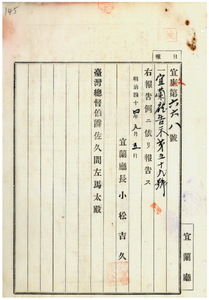 145
宜庶第六六八號
一宜蘭廳告示第五十九號
右報告例ニ依リ報告ス
明治四十四年九月五日
宜蘭廳長 小松吉久
臺灣總督伯爵佐久間左馬太殿
宜蘭廳